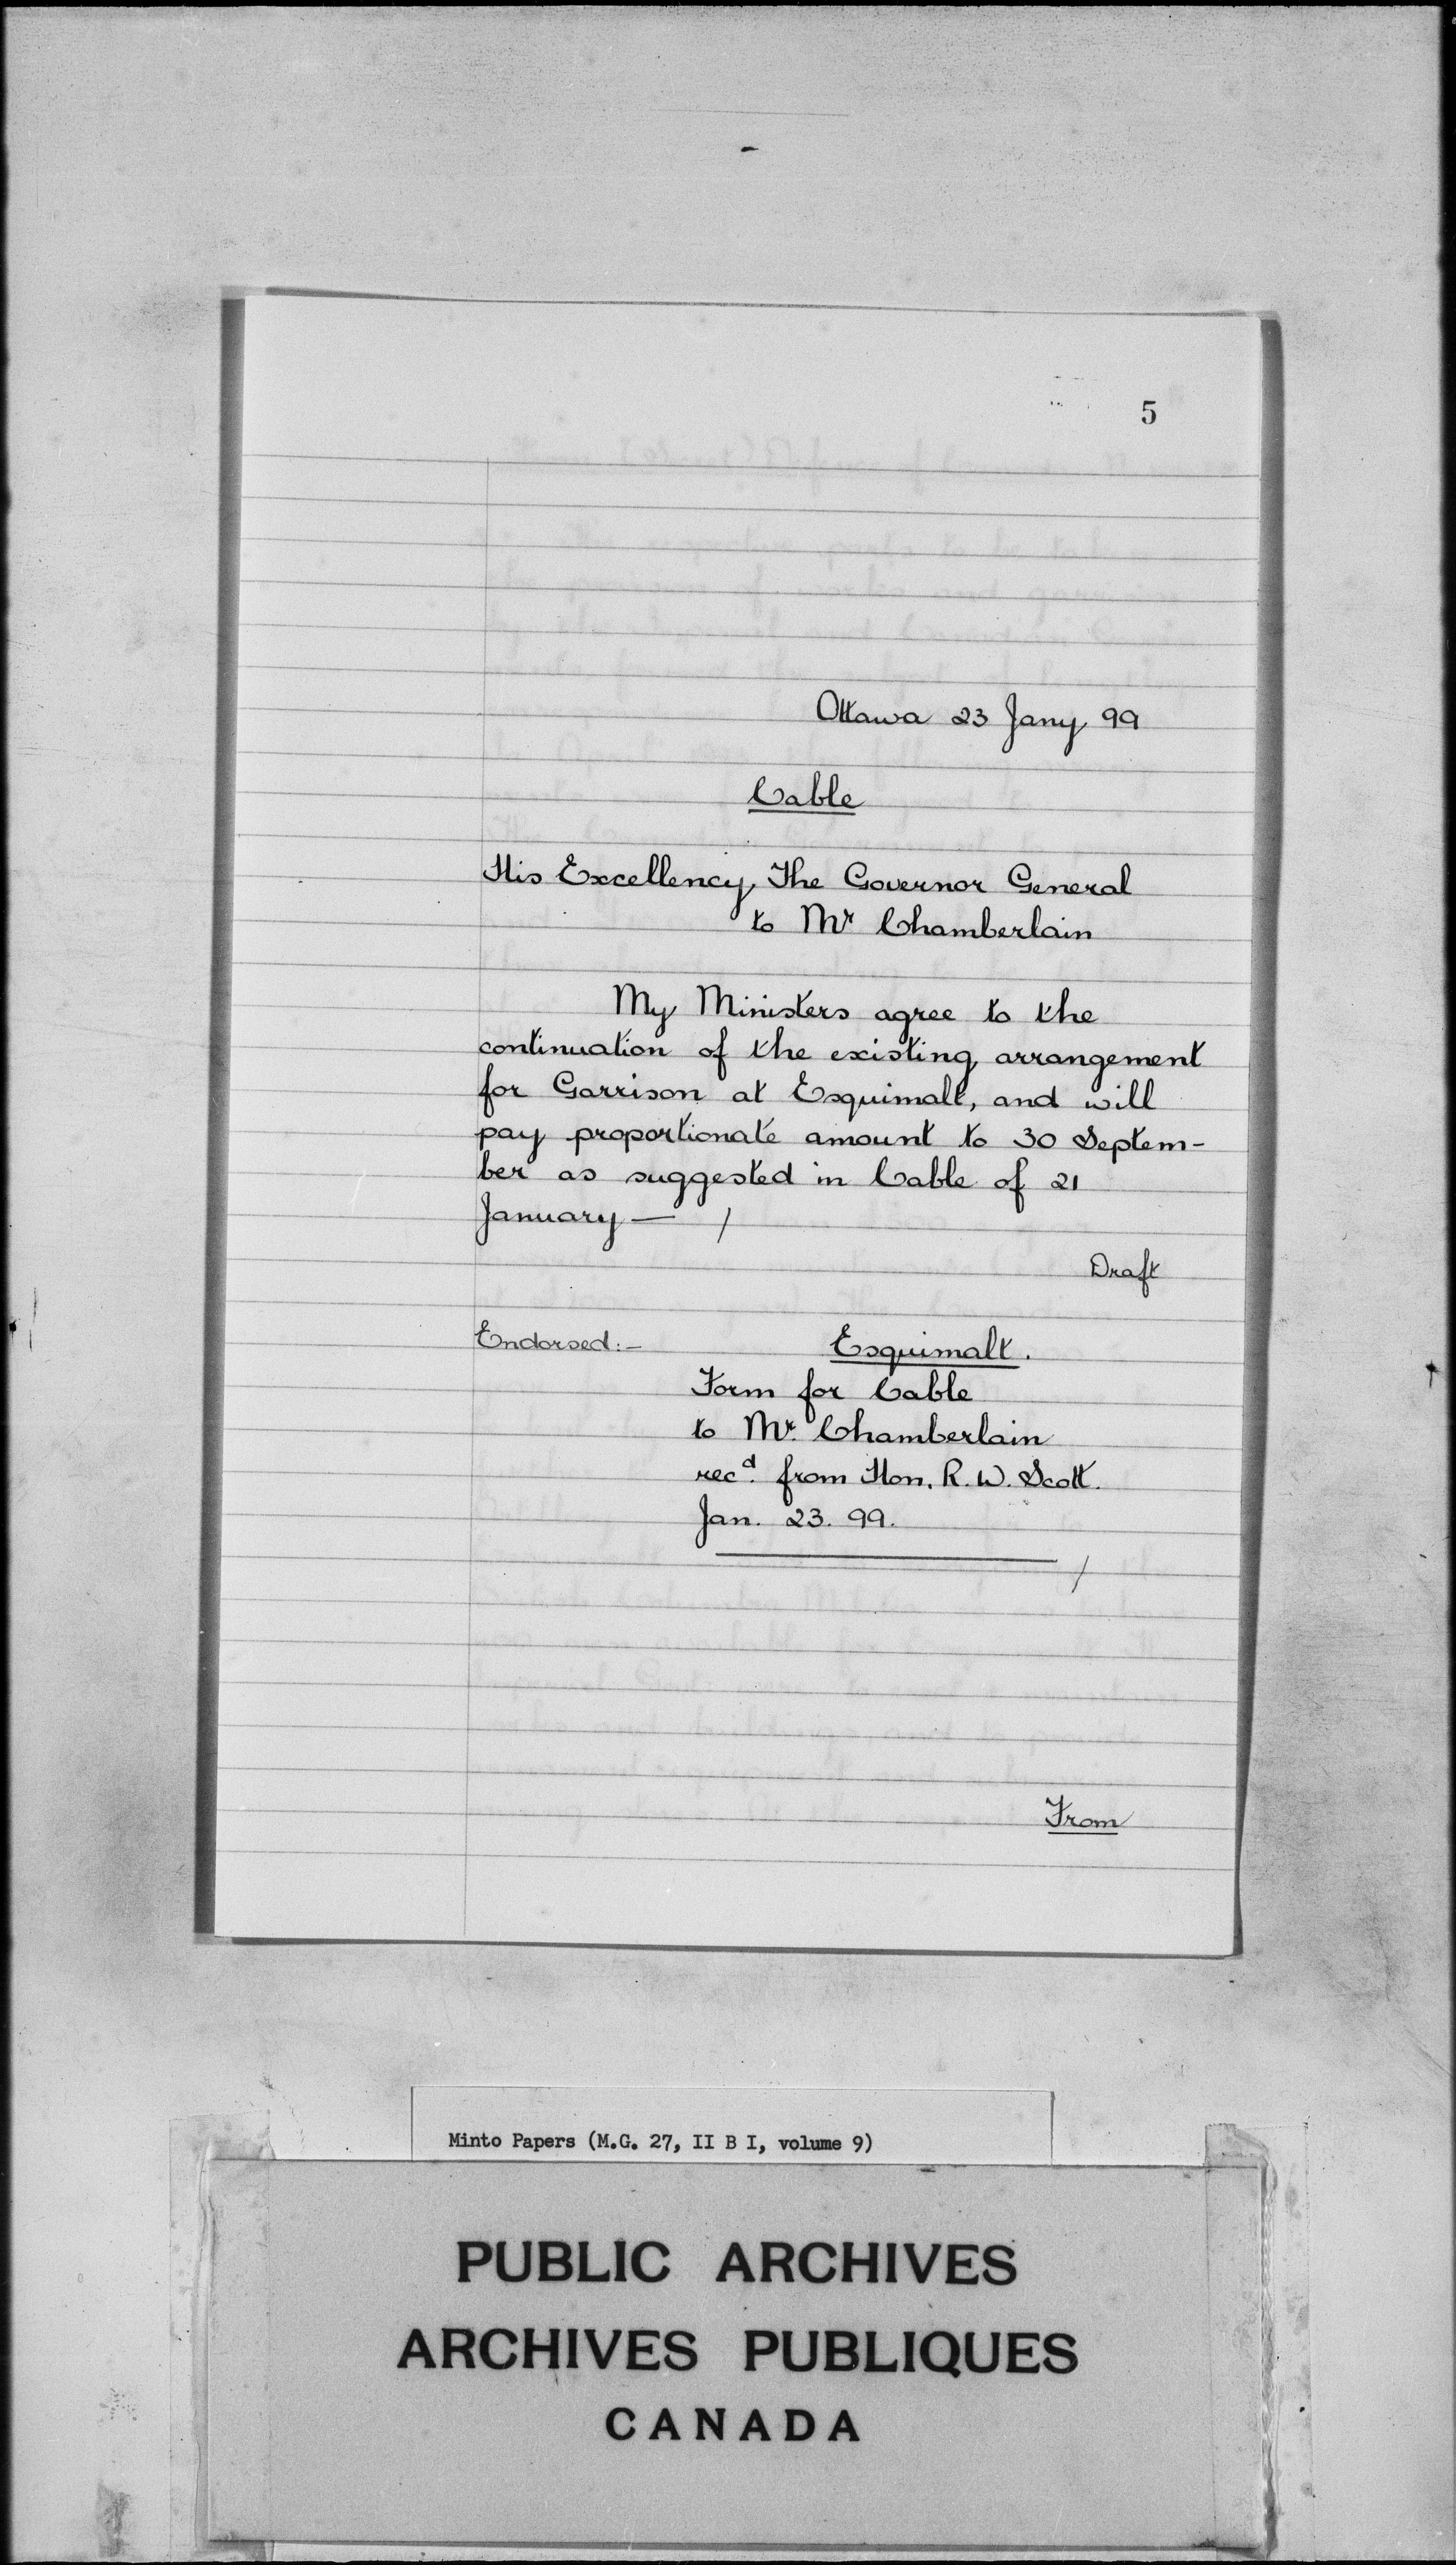 5
Ottawa 23 Jany 99
Cable
His Excellency, The Governor General
to Mr Chamberlain
My Ministers agree to the
continuation of the existing arrangement
for Garrison at Esquimalt, and will
pay proportionate amount to 30 Septem-
ber as suggested in Cable of 21
January — /
Draft
Endorsed:- Esquimalt.
Form for Cable
to Mr. Chamberlain
recd. from Hon. R. W. Scott.
Jan. 23. 99.
/
From
Minto Papers (M.G. 27, II B I, volume 9)
PUBLIC ARCHIVES
ARCHIVES PUBLIQUES
CANADA